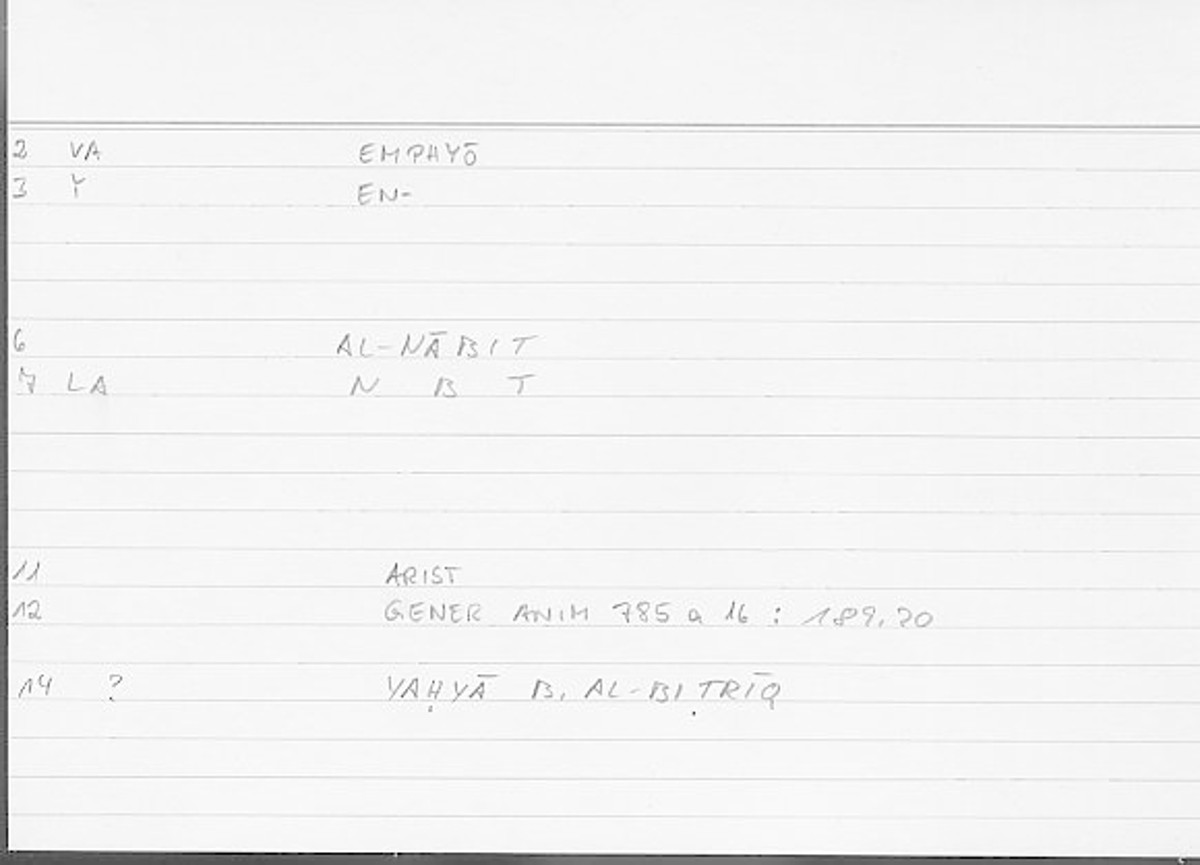 2 VA EMPHYŌ
3 Y EN-
6 AL-NĀBIT
7 LA N B T
11 ARIST
12 GENER ANIM 785 a 16 : 189.20
14 ? YAḤYĀ B. AL-BIṬRĪQ